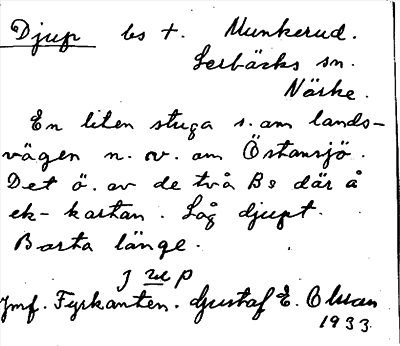 Djup bs t. Munkerud.
Lerbäcks sn.
Närke.
En liten stuga s. om lands-
vägen n. ov. om Östansjö.
Det ö. av de två Bs där å
ek-kartan. Låg djupt.
Borta länge.
jup
Jmf. Fyrkanten. Gustaf E. Olsson
1933.